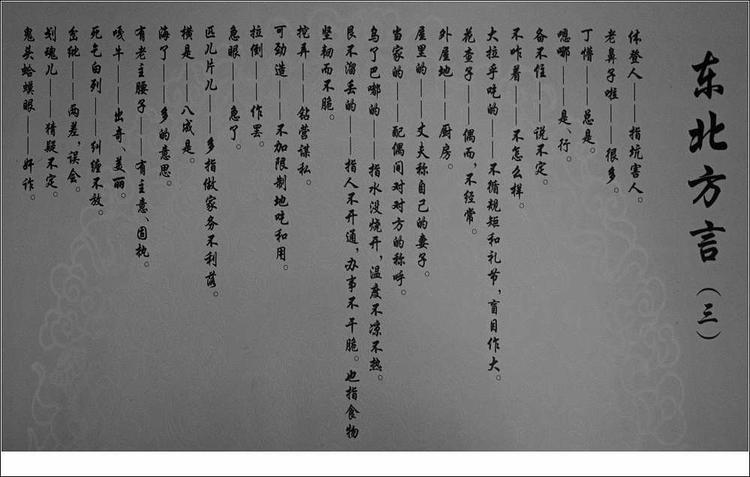 东北方言（三）
体登人——指坑害人。
老鼻子啦——很多。
丁憎——总是。
嗯哪——是、行。
备不住——说不定。
不咋着——不怎么样。
大拉乎吃的——不循规短和礼节，盲目作大。
花查子——偶而，不经常。
外屋地——厨房。
屋里的——丈夫称自己的妻子。
当家的——配偶间对对方的称呼。
乌了巴嘟的——指水没烧开，温度不凉不热。
艮不溜丢的——指人不开通，办事不干脆。也指食物
坚韧而不脆。
挖弄——钻营谋私。
可劲造——不加限制地吃和用。
拉倒——作罢。
急眼——急了。
匹儿片儿——多指做家务不利落。
横是——八成是。
海了——多的意思。
有老主腰子——有主意、固执。
嘎牛——出奇、美丽。
死乞白列——纠缠不放。
岔纰——两差，误会。
划魂儿——猜疑不定。
鬼头蛤蟆眼——奸诈。